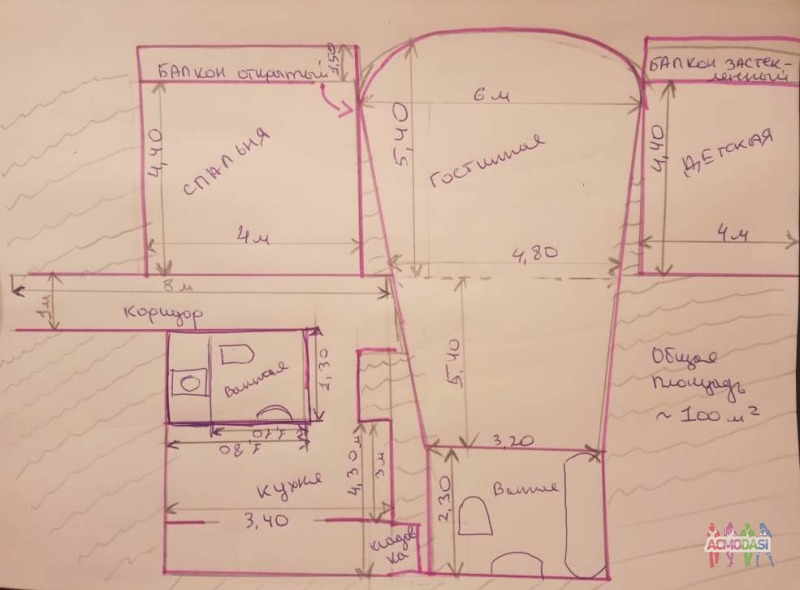 БАЛКОН ОТКРЫТЫЙ
1,50
БАЛКОН ЗАСТЕК-
ЛЕННЫЙ
6 м
4,40
СПАЛЬНЯ
5,40
ГОСТИННАЯ
4,40
ДЕТСКАЯ
4м
4,80
4м
8 м
1м
Коридор
Ванная
1,30
5,40
Общая
площадь
~ 100 м²
1,10
1,80
3,20
КУХНЯ
4,30м
3м
2,30
Ванная
3,40
кладов
ка
ACMODASI